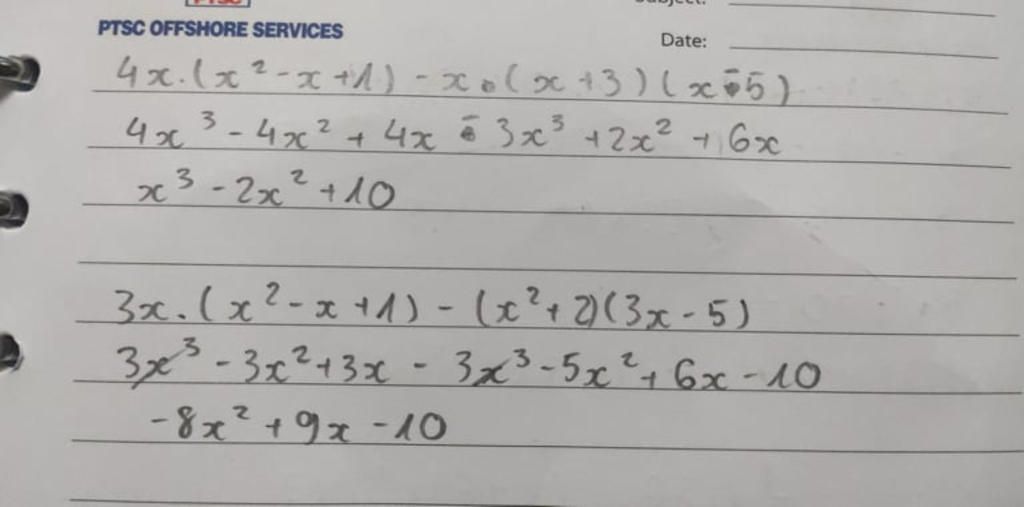 PTSC
PTSC OFFSHORE SERVICES
Subject:
Date:
4x.(x² - x + 1) - x.(x + 3)(x - 5)
4x³ - 4x² + 4x - 3x³ + 2x² + 6x
x³ - 2x² + 10
3x.(x² - x + 1) - (x² + 2)(3x - 5)
3x³ - 3x² + 3x - 3x³ - 5x² + 6x - 10
-8x² + 9x - 10